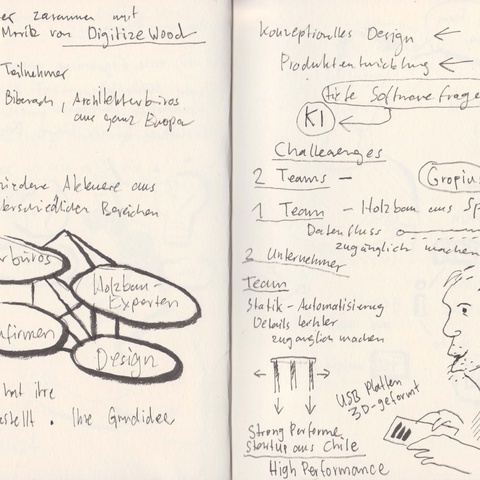 zusammen mit
Marik von Digitize Wood
Teilnehmer
Biberach, Architekturbüros
aus ganz Europa
Akteure aus
Bereichen
büros
Holzbau-
Experten
firmen
Design
hat ihre
Ihre Grundidee
Konzeptionelles Design
Produktentwicklung
tiefe Softwarefrage
KI
Challenges
2 Teams - Gropius
1 Team - Holzbau aus Sp
Datenfluss
zugänglich machen
2 Unternehmer
Team
Statik-Automatisierung
Details leichter
zugänglich machen
USB Platten
3D-geformt
Strong Performe
Startup aus Chile
High Performance